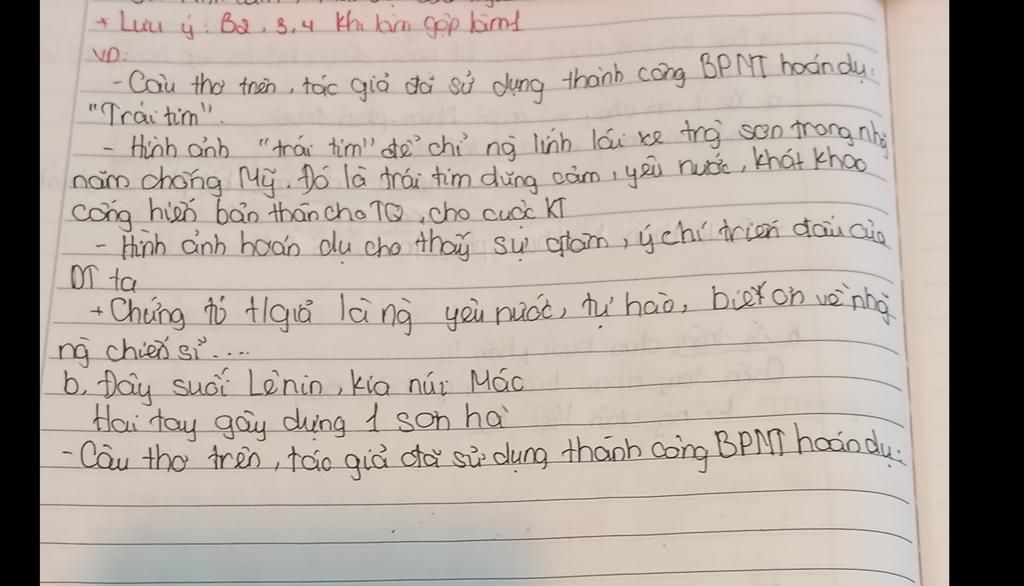 + Lưu ý: B2, 3, 4 khi làm gộp làm 1
VD:
- Câu thơ trên, tác giả đã sử dụng thành công BPNT hoán dụ:
"Trái tim".
- Hình ảnh "trái tim" để chỉ ng lính lái xe trg sơn trong nhg
năm chống Mỹ. Đó là trái tim dũng cảm, yêu nước, khát khao
cống hiến bản thân cho TQ, cho cuộc KT
- Hình ảnh hoán dụ cho thấy sự ý chí triến đấu của
DT ta
+ Chứng tỏ t/giả là ng yêu nước, tự hào, biết ơn về nhg
ng chiến sĩ....
b. Đây suối Lênin, kia núi Mác
Hai tay gây dựng 1 sơn hà
- Câu thơ trên, tác giả đã sử dụng thành công BPNT hoán dụ: